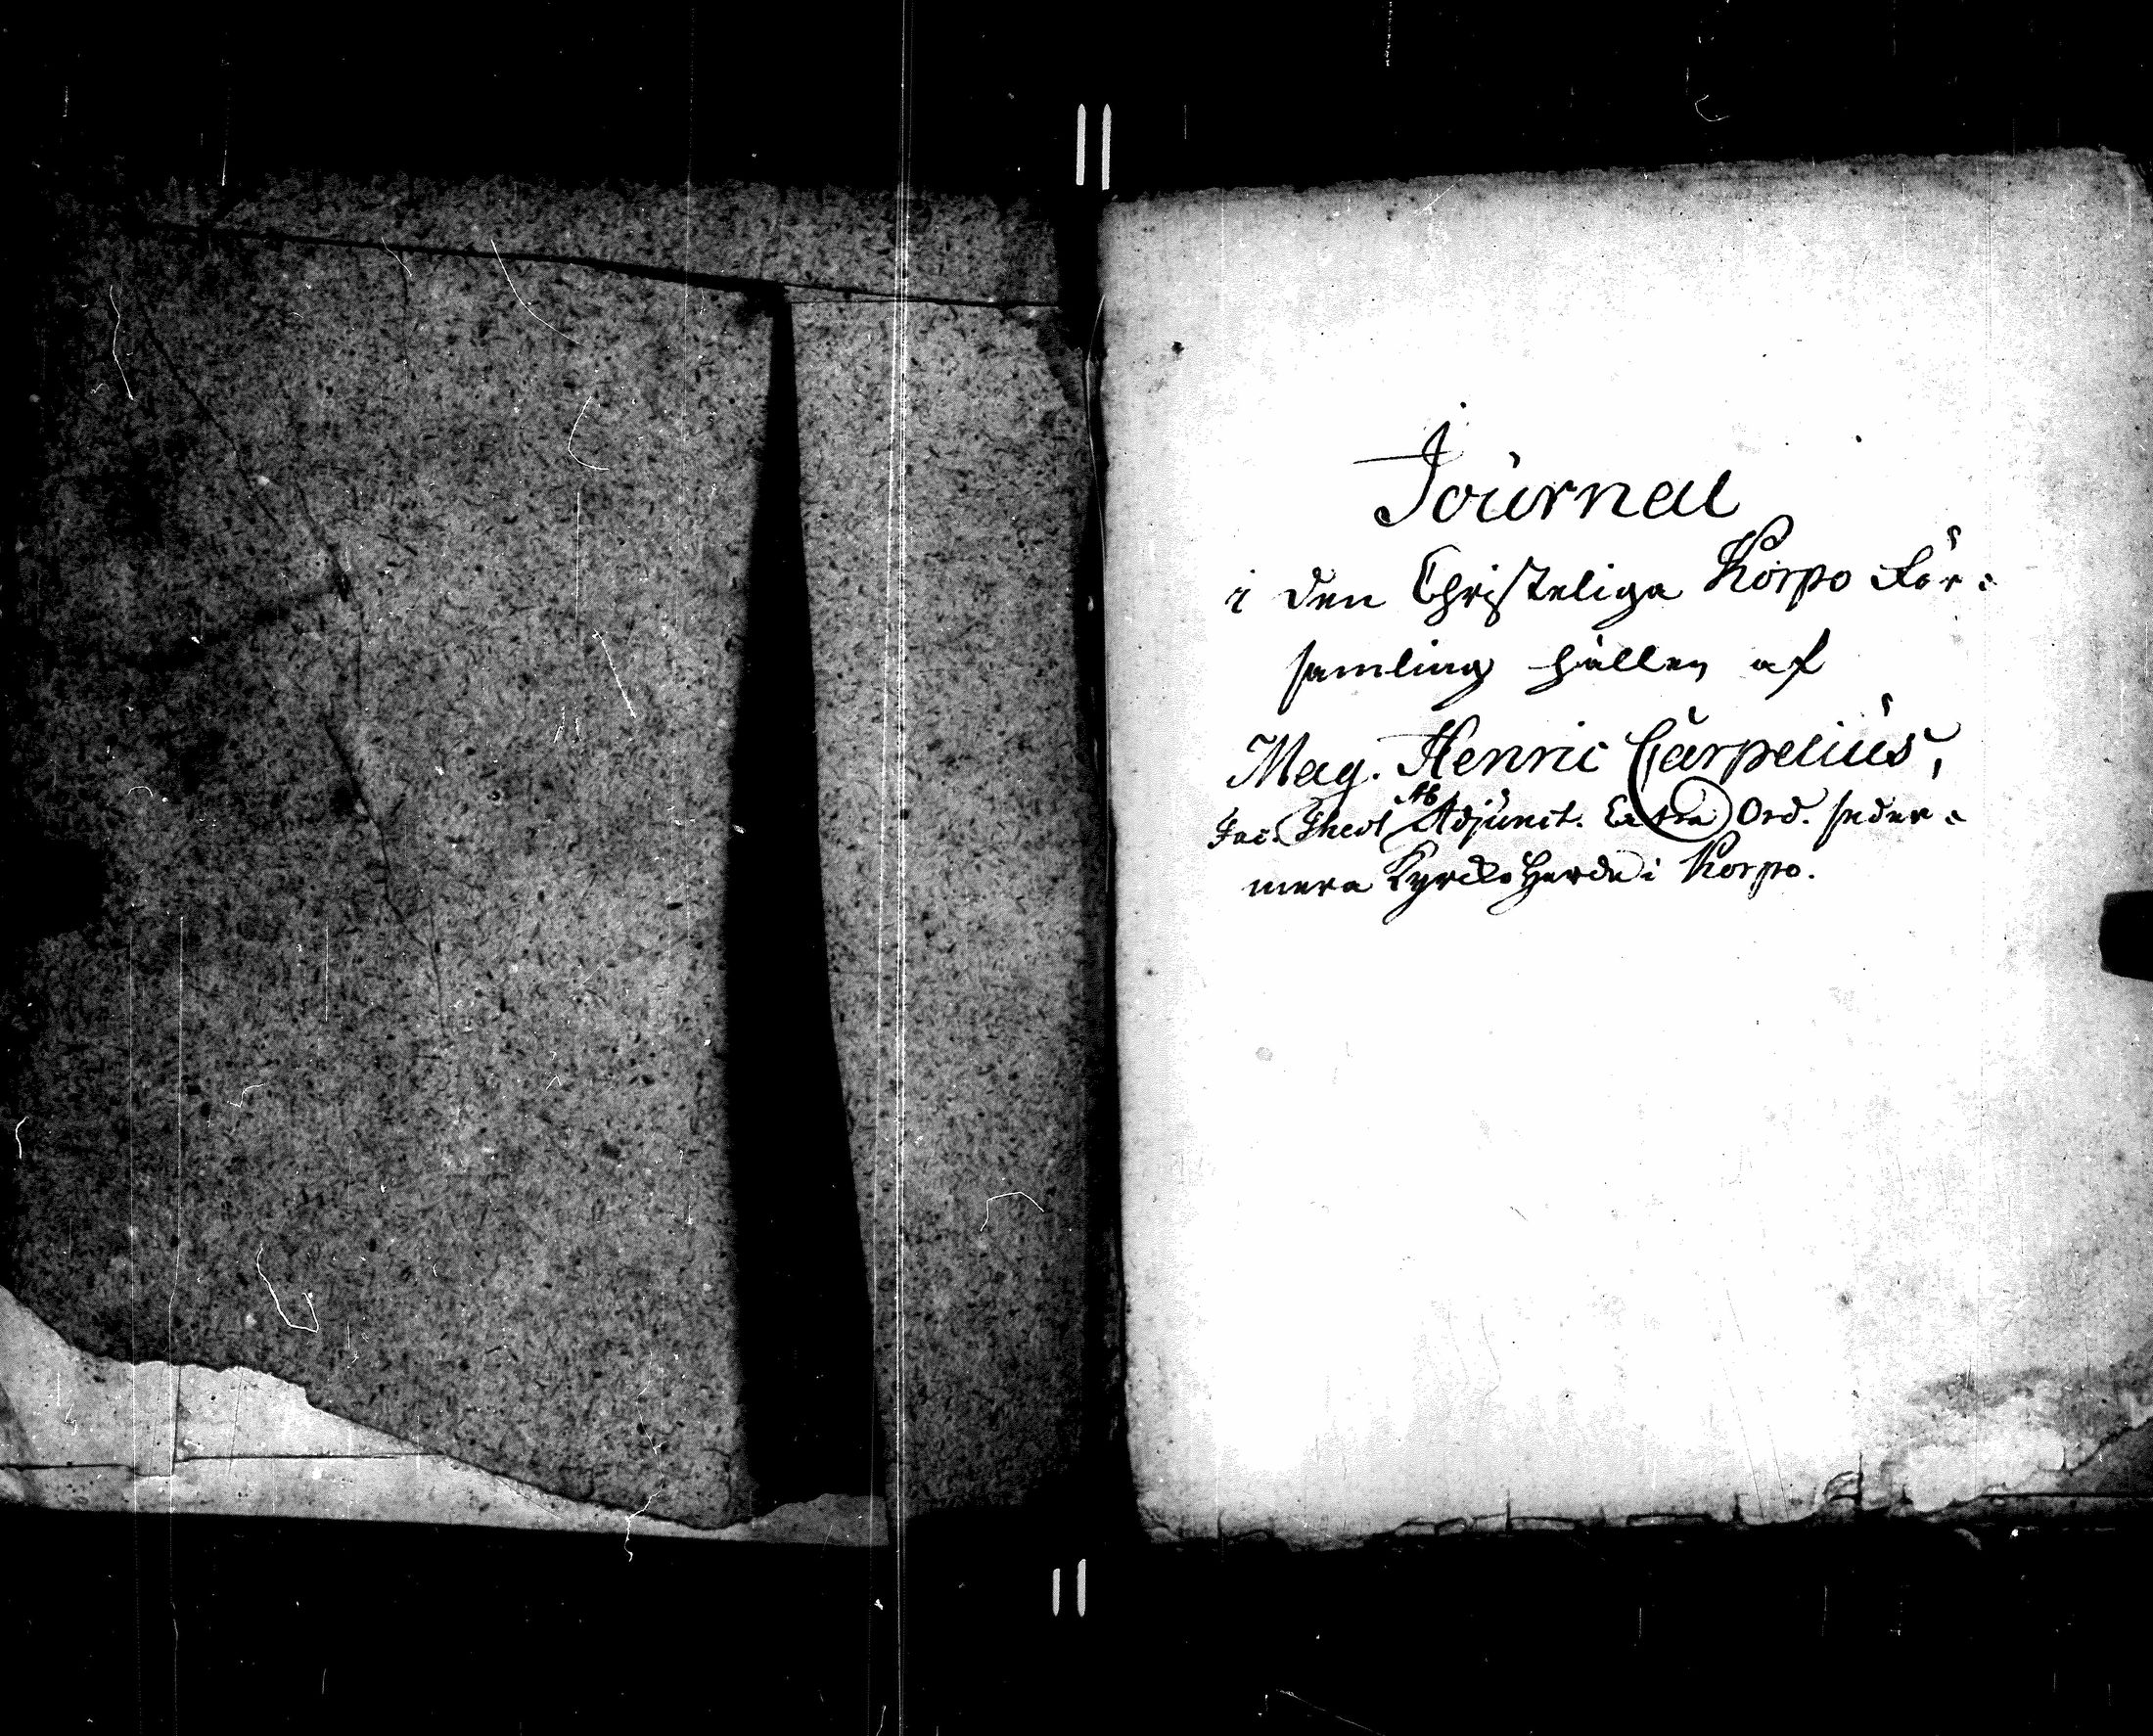 Journal
i den Christeliga Korpo För-
samling hållen af
Mag. Henric Carpelius,
Fac. Theol Ab Adjunct. Extra Ord. seder-
mera Kyrcko Herde i Korpo.